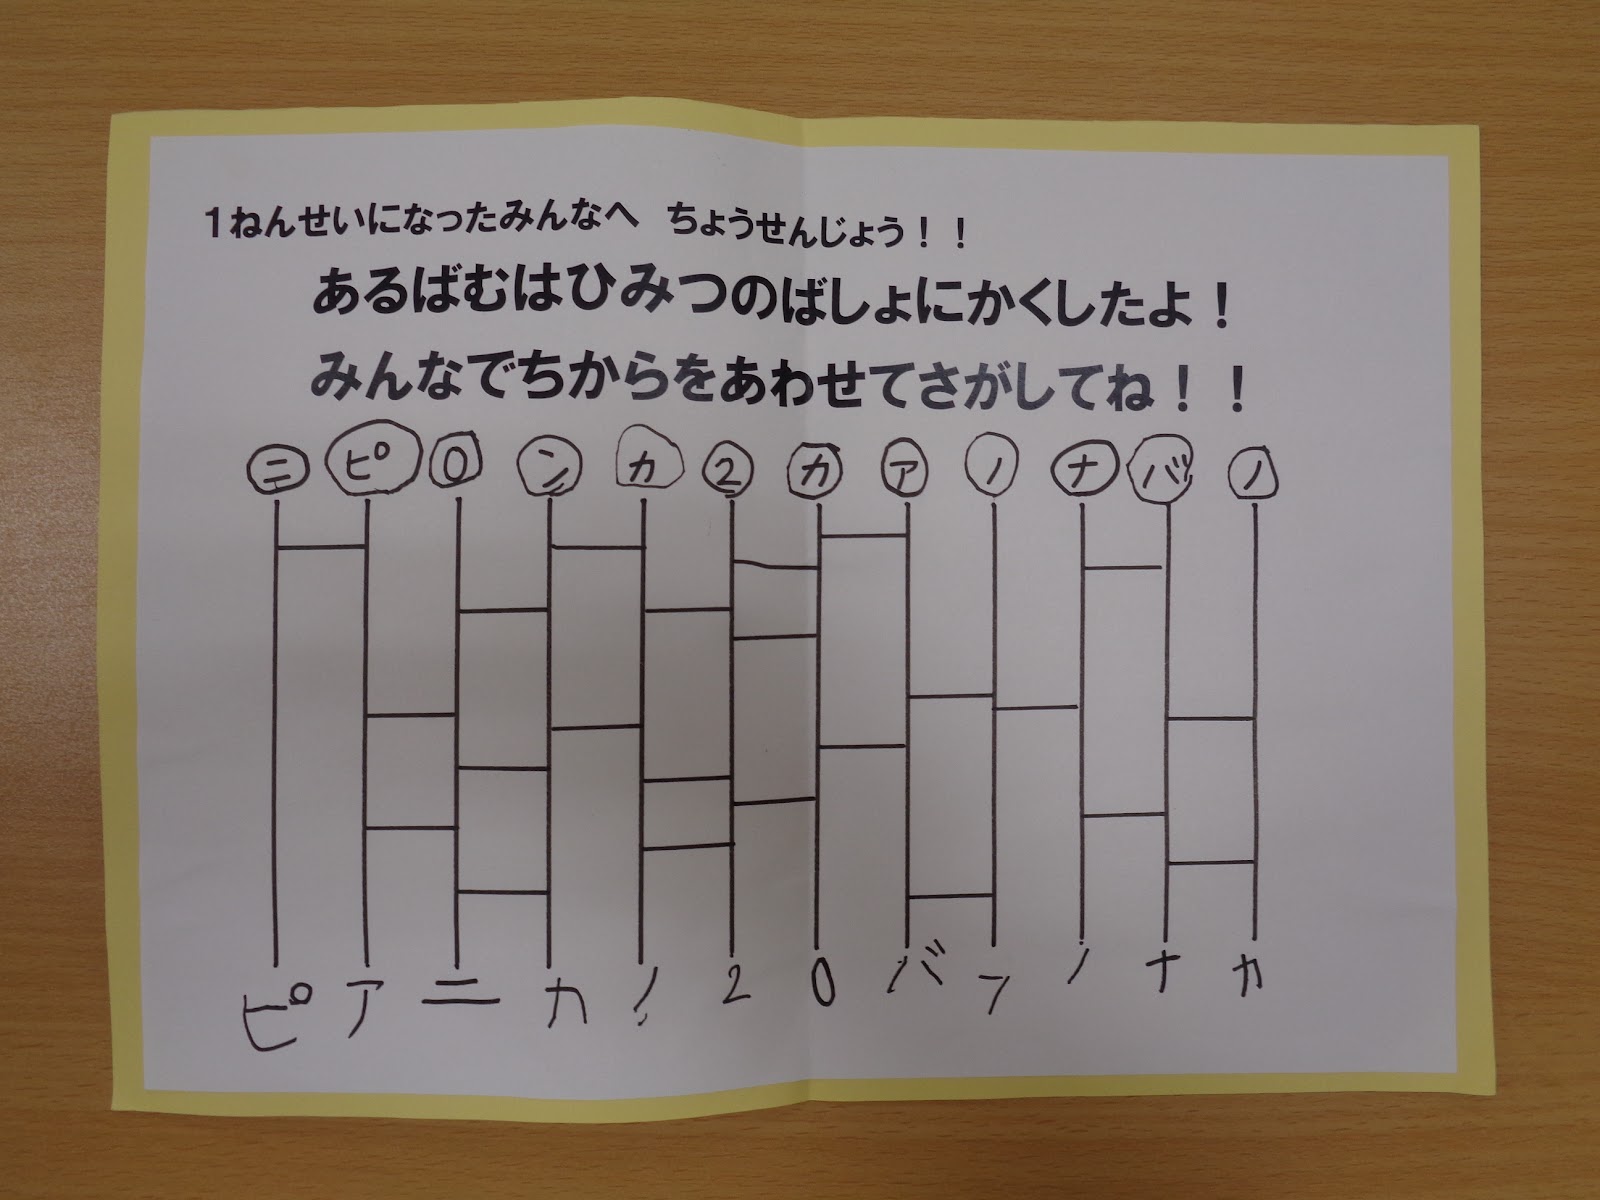 1ねんせいになったみんなへ ちょうせんじょう！！
あるばむはひみつのばしょにかくしたよ！
みんなでちからをあわせてさがしてね！！
ニ ピ 0 ン カ 2 カ ア ノ ナ バ ノ
ピ ア ニ カ ノ 2 0 バ ン ノ ナ カ